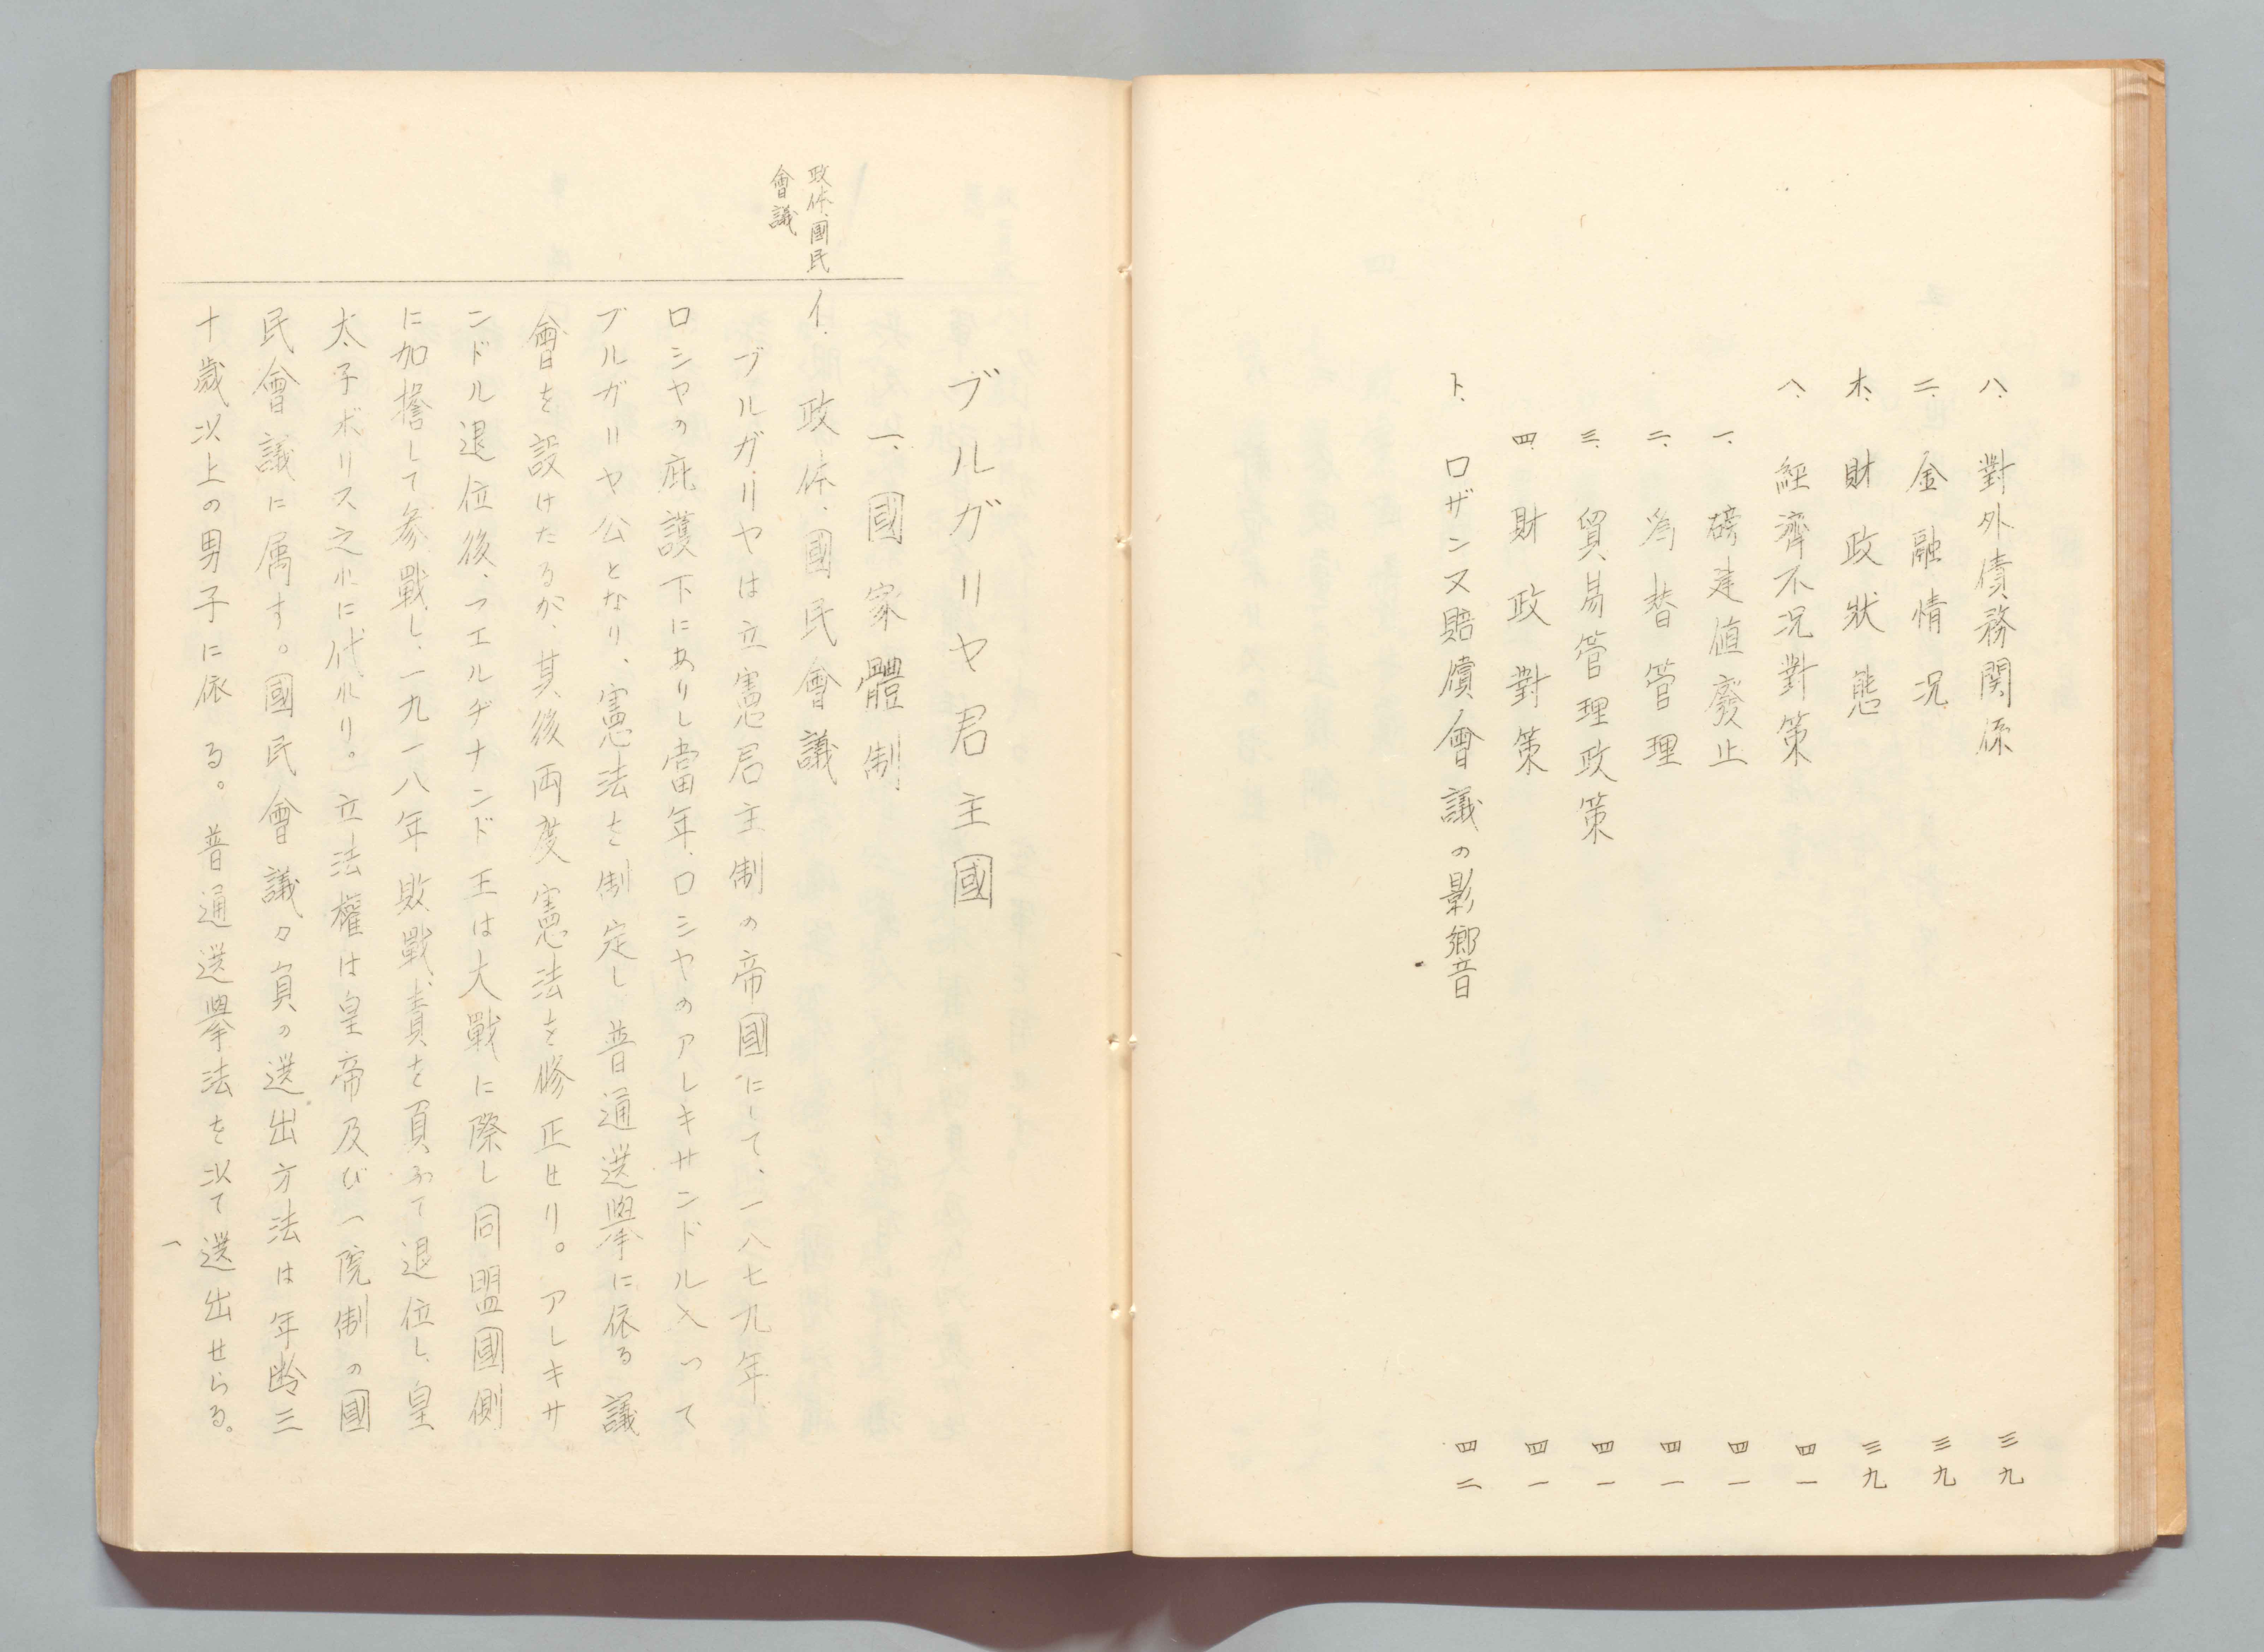 ハ、對外債務関係 三九
ニ、金融情況 三九
ホ、財政狀態 三九
ヘ、經濟不況對策 四一
一、磅建値廢止 四一
二、為替管理 四一
三、貿易管理政策 四一
四、財政對策 四一
ト、ロザンヌ賠償會議の影響 四二
ブルガリヤ君主國
一、國家體制
政体、國民
會議
イ、政体、國民會議
ブルガリヤは立憲君主制の帝國にして、一八七九年、
ロシヤの庇護下にありし當年、ロシヤのアレキサンドル入つて
ブルガリヤ公となり、憲法を制定し普通選擧に依る議
會を設けたるが、其後両度憲法を修正せり。アレキサ
ンドル退位後、フエルヂナンド王は大戰に際し同盟國側
に加擔して參戰し、一九一八年敗戰、責を負ふて退位し、皇
太子ボリス之れに代れり。立法權は皇帝及び一院制の國
民會議に属す。國民會議々員の選出方法は年齢三
十歳以上の男子に依る。普通選擧法を以て選出せらる。
一